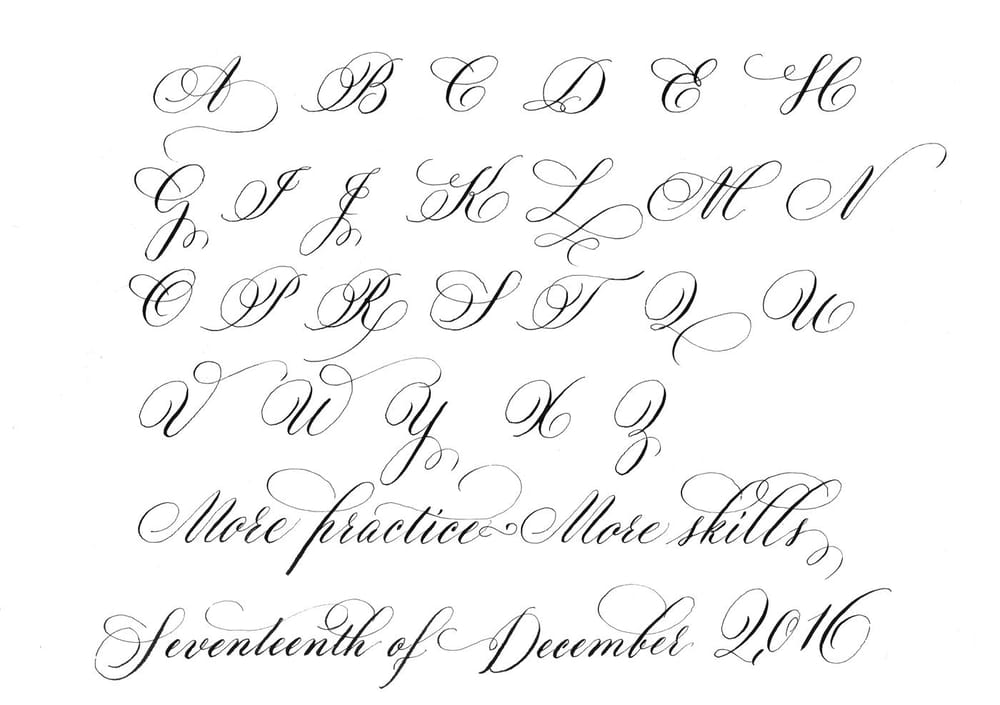 A B C D E H
G I J K L M N
O P R S T Q U
V W Y X Z
More practice More skills
Seventeenth of December 2016